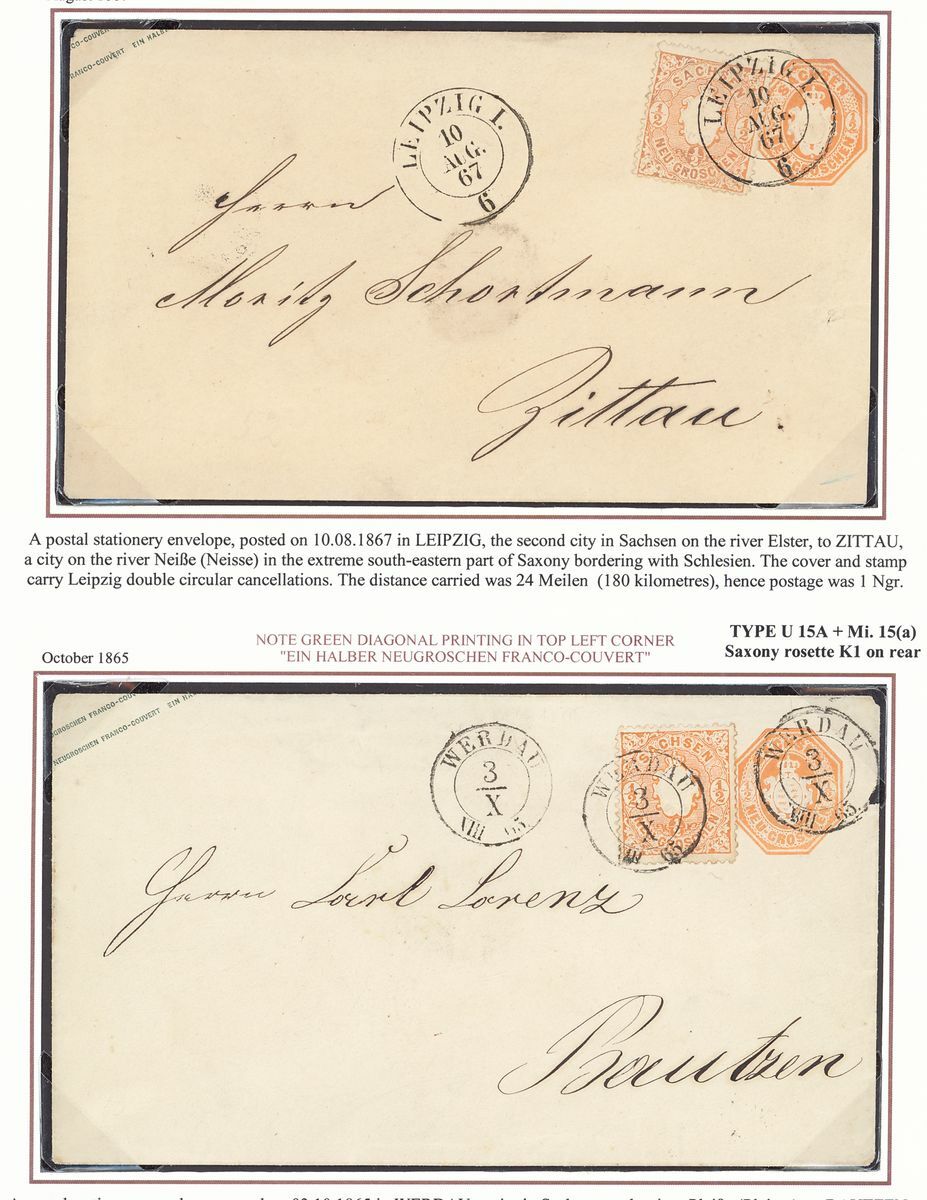 FRANCO-COUVERT EIN HALB
LEIPZIG I.
10
AUG.
67
6
SACHSEN
1/2
NEU-GROSCHEN
LEIPZIG I.
10
AUG.
67
6
Herrn
Moritz Schortmann
Zittau.
A postal stationery envelope, posted on 10.08.1867 in LEIPZIG, the second city in Sachsen on the river Elster, to ZITTAU,
a city on the river Neiße (Neisse) in the extreme south-eastern part of Saxony bordering with Schlesien. The cover and stamp
carry Leipzig double circular cancellations. The distance carried was 24 Meilen (180 kilometres), hence postage was 1 Ngr.
October 1865
NOTE GREEN DIAGONAL PRINTING IN TOP LEFT CORNER
"EIN HALBER NEUGROSCHEN FRANCO-COUVERT"
TYPE U 15A + Mi. 15(a)
Saxony rosette K1 on rear
NEUGROSCHEN FRANCO-COUVERT EIN HA
WERDAU
3
X
VIII 65
WERDAU
3
X
65
WERDAU
3
X
VIII 65
Herrn Carl Lorenz
Bautzen